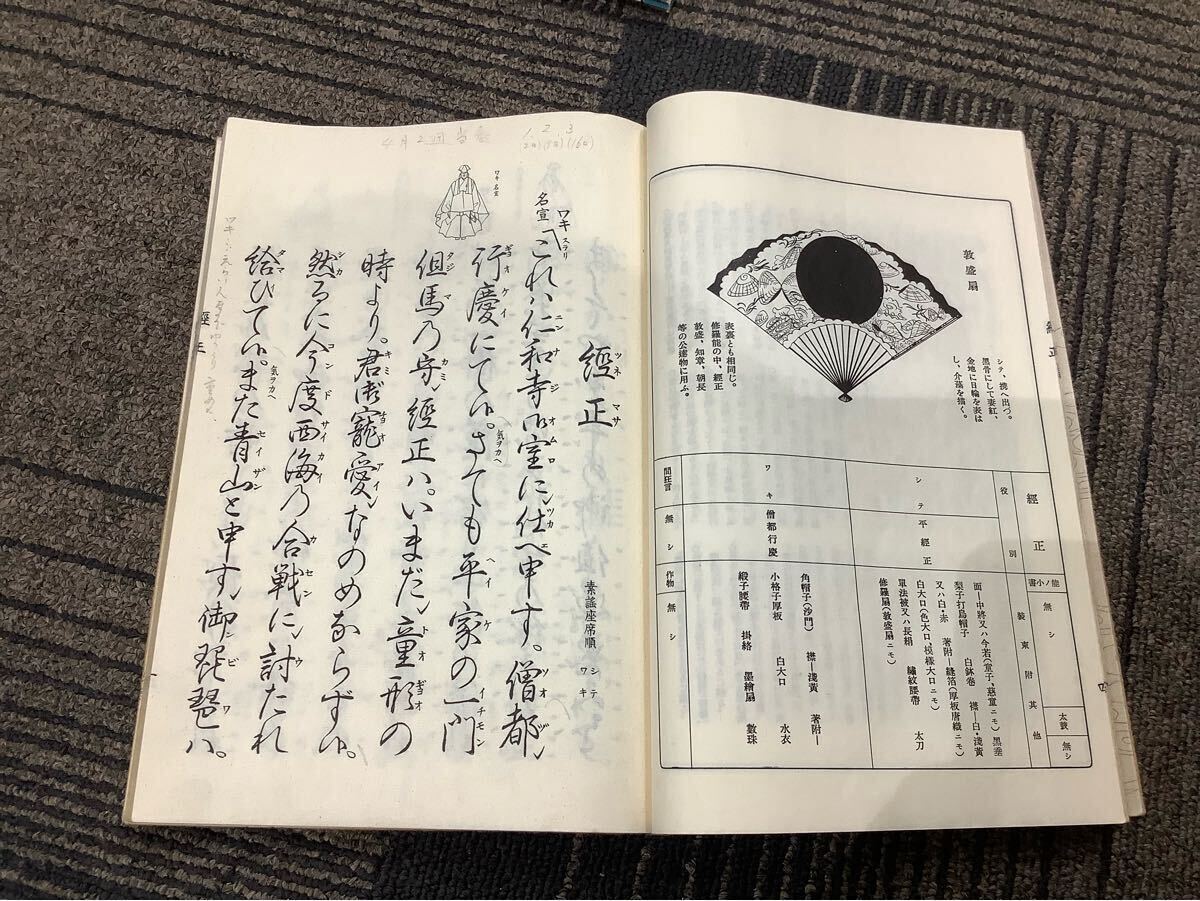 敦盛扇
シテ、携へ出づ。
黑骨にして妻紅、
金地に日輪を表は
し、介藻を描く。
表裏とも相同じ。
修羅能の中、經正
敦盛、知章、朝長
等の公達物に用ふ。
經正
役別
能ノ小書
無シ
裝束附其他
太鼓
無シ
シテ
平經正
面―中將又ハ今若(童子、慈童ニモ) 黑垂
梨子打烏帽子 白鉢卷 襟―白・淺黄
又ハ白・赤 著附―縫箔(厚板唐織ニモ)
白大口(色大口、模樣大口ニモ)
單法被又ハ長絹 繡紋腰帶 太刀
修羅扇(敦盛扇ニモ)
ワキ
僧都行慶
角帽子(沙門) 襟―淺黄 著附―
小格子厚板 白大口 水衣
緞子腰帶 掛絡 墨繪扇 數珠
間狂言
無シ
作物
無シ
經正
四
4月2週
1. 2. 3
經正
ツネマサ
素謠座席順
シテ
ワキ
ワキ 名宣
ワキ
名宣
スラリ
これハ仁和寺御室に、仕へ申す。僧都、
行慶にて候。さても平家の一門
氣ヲカヘ
但馬乃守、經正ハ。いまだ、童形の
時より。君御寵愛、なのめならず候。
然るに今度西海乃合戰に、討たれ
給ひて候。また青山と申す、御琵琶ハ。
氣ヲカヘ
經正